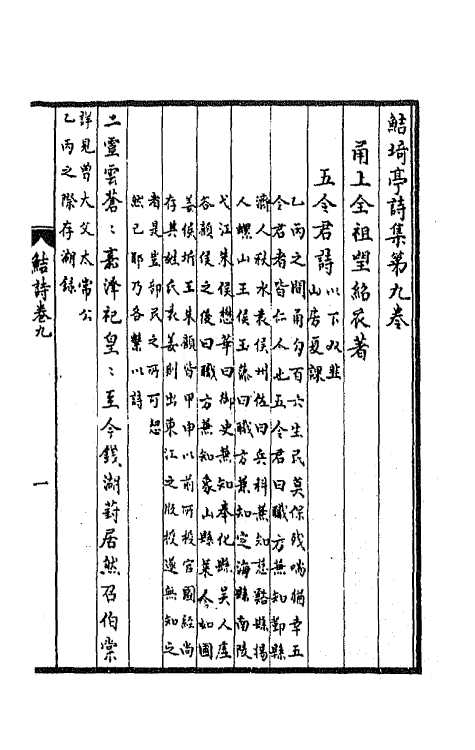 鮚埼亭詩集第九卷
甬上全祖望紹衣著
五令君詩 以下双韭山房夏課
乙丙之間甬句百六生民莫保殘喘猶幸五
令君者皆仁人也五令君曰職方兼知鄞縣
濟人秋水袁侯州佐曰兵科兼知慈谿縣揚
人螺山王侯玉藻曰職方兼知定海縣南陵
弋江朱侯懋華曰御史兼知奉化縣吳人虛
谷顧侯之俊曰職方兼知象山縣萊人如國
姜侯圻王朱顧皆甲申以前所授官國經尚
存其姓氏袁姜則出東江之版授遂無知之
者是豈部民之所可恕
然已耶乃各繫以詩
二靈雲蒼〻袁澤祀皇〻至今錢湖葑居然召伯棠
詳見曾大父太常公
乙丙之際存湖錄
鮚詩卷九
一